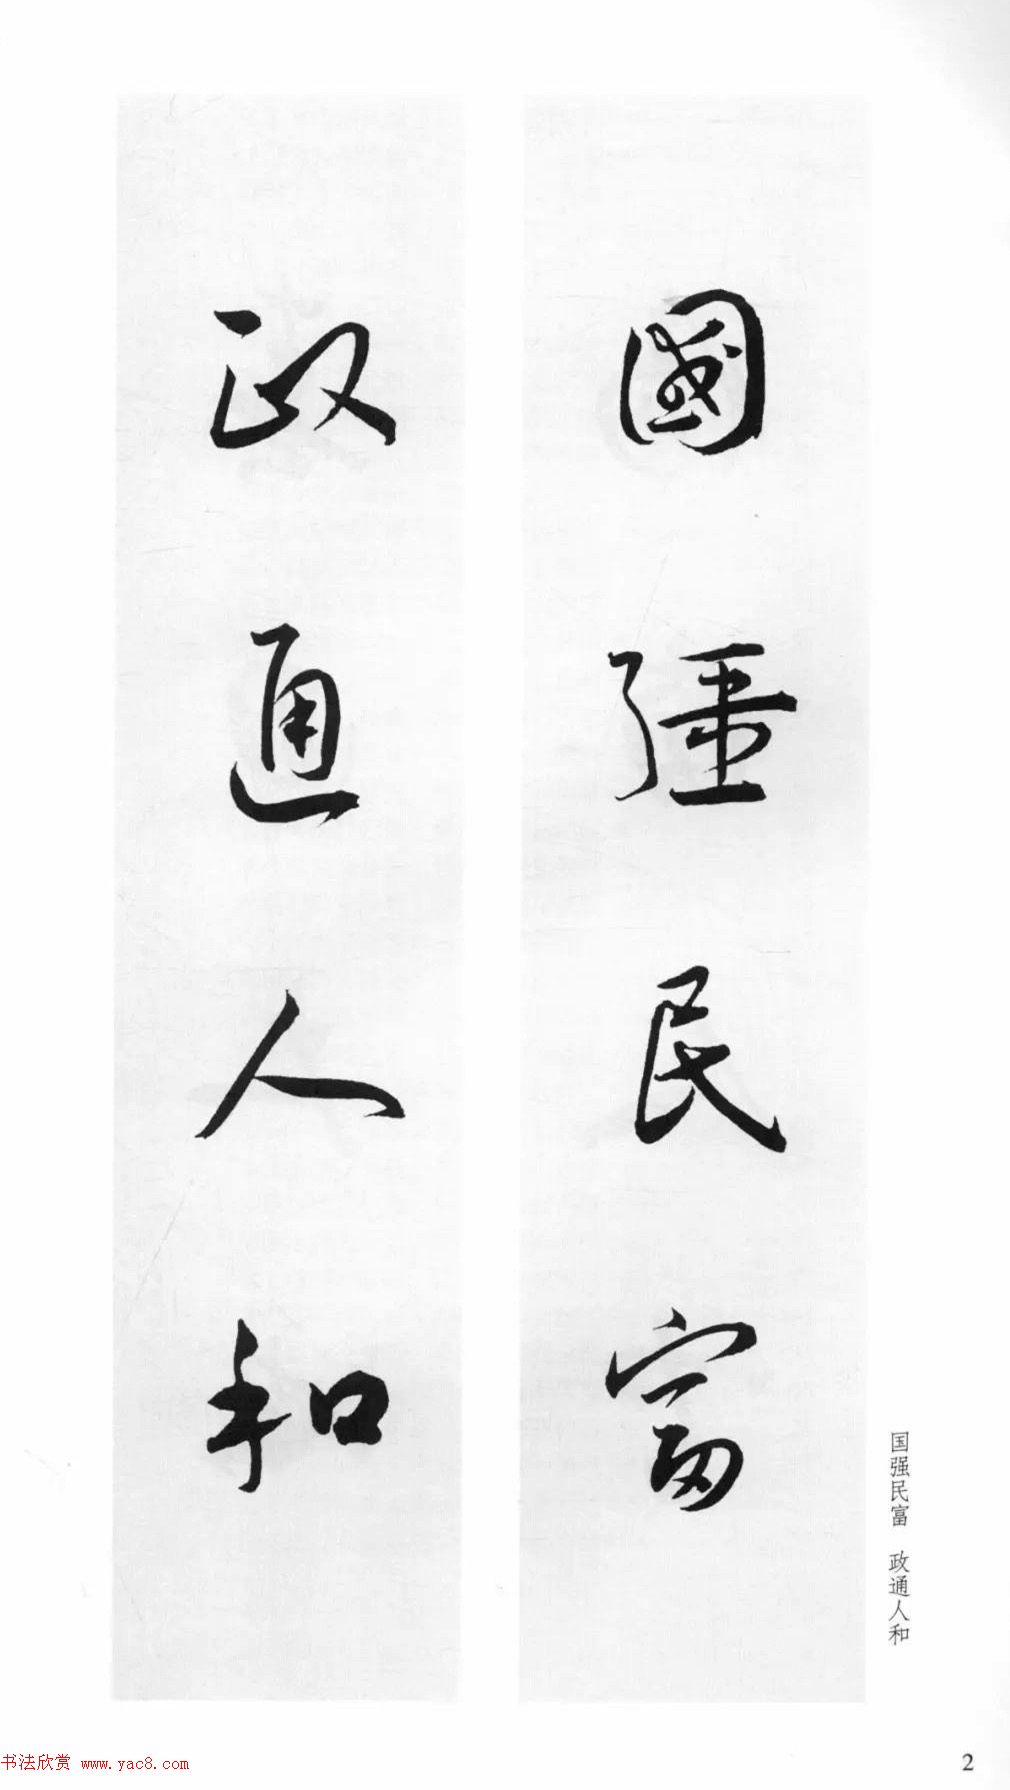 國彊民富
政通人和
国强民富 政通人和
书法欣赏 www.yac8.com
2